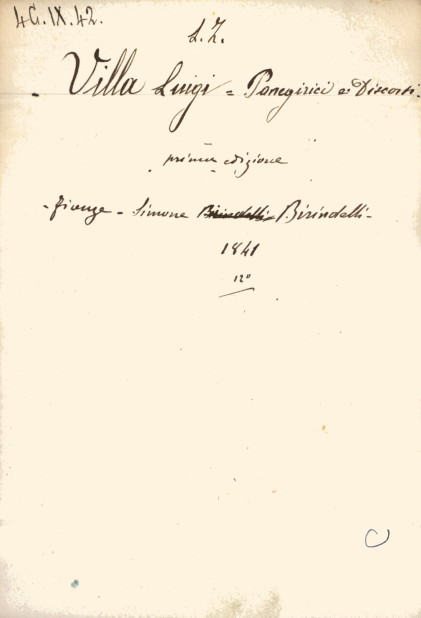 4C.IX.42.
L.Z.
- Villa Luigi = Panegirici e Discorsi.
prima edizione
- Firenze - Simone Birindelli Birindelli -
1841
12º
C